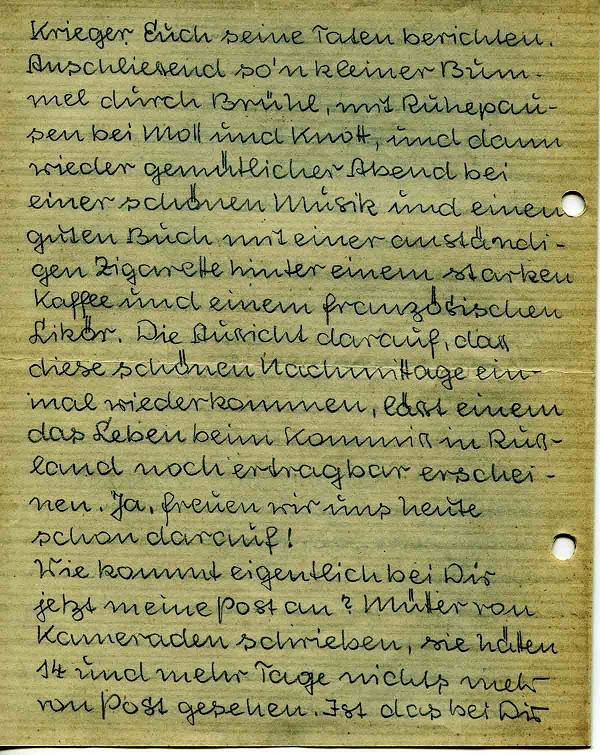 Krieger Euch seine Taten berichten.
Anschliesend so'n kleiner Bum-
mel durch Brühl, mit Ruhepau-
sen bei Moll und Knott, und dann
wieder gemütlicher Abend bei
einer schönen Musik und einen
guten Buch mit einer anständi-
gen Zigarette hinter einem starken
Kaffee und einem französischen
Likör. Die Aussicht darauf, das
diese schönen Nachmittage ein-
mal wiederkommen, lässt einem
das Leben beim Kommiss in Ruß-
land noch ertragbar erschei-
nen. Ja, freuen wir uns heute
schon darauf!
Wie kommt eigentlich bei Dir
jetzt meine Post an? Mütter von
Kameraden schrieben, sie hätten
14 und mehr Tage nichts mehr
von Post gesehen. Ist das bei Dir